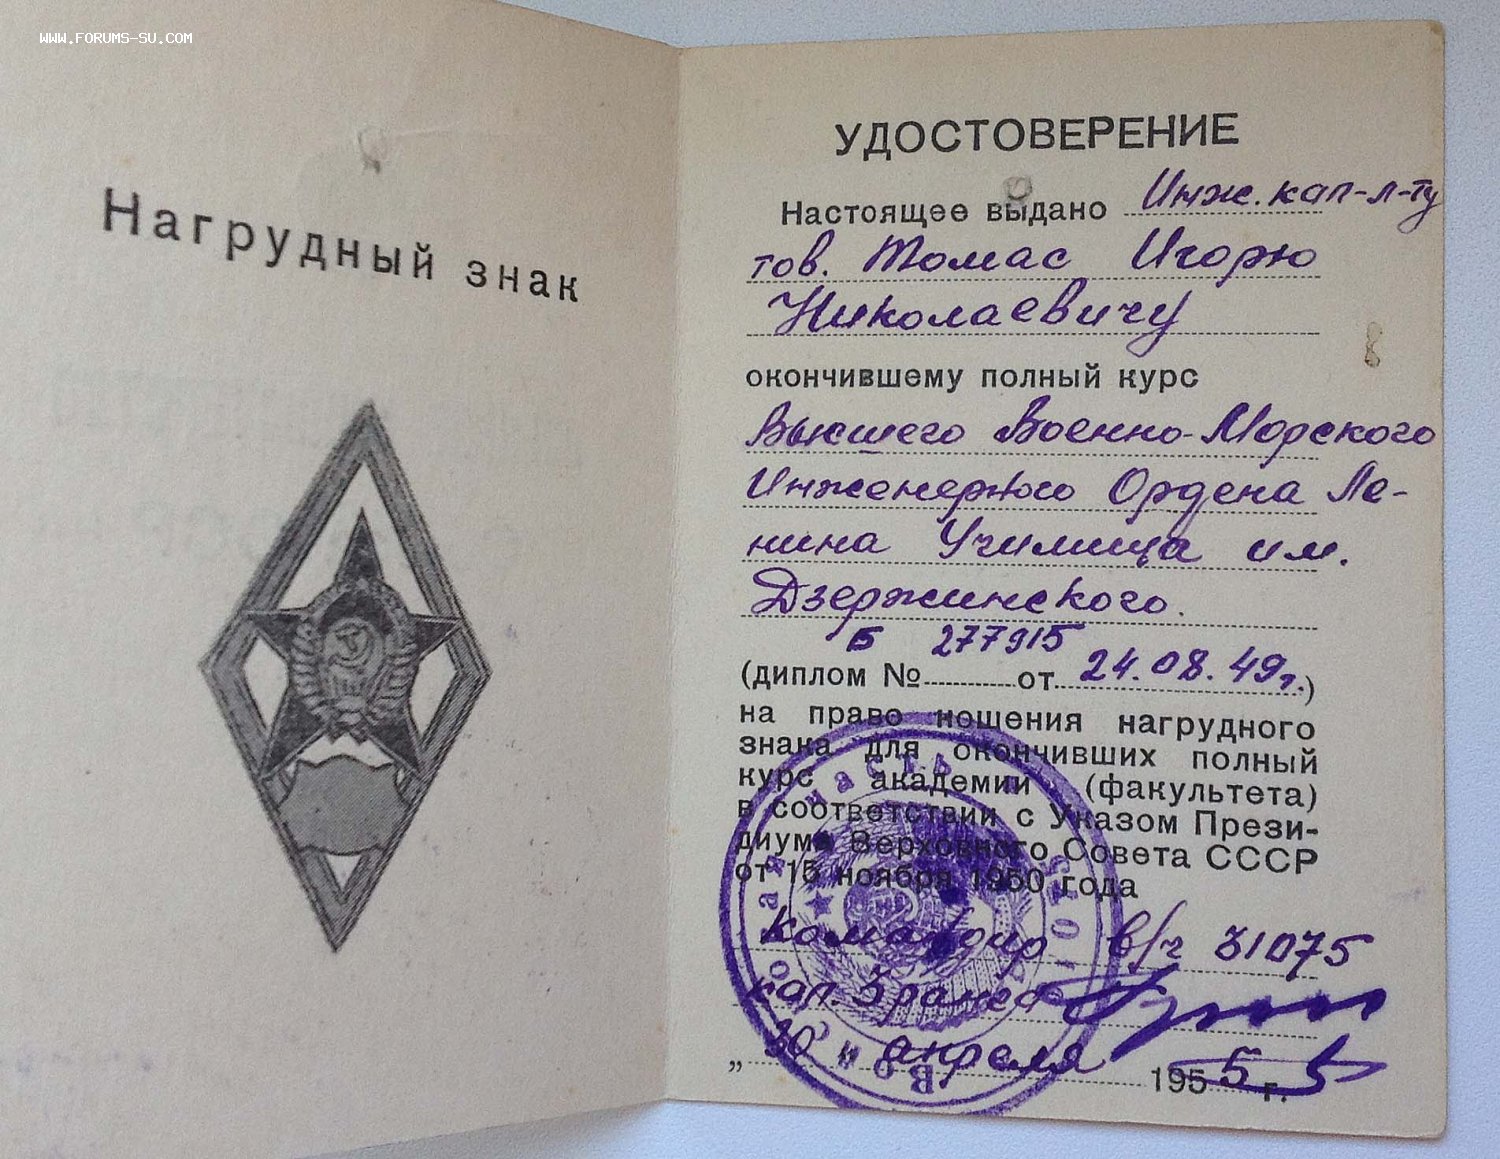 WWW.FORUMS-SU.COM
Нагрудный знак
УДОСТОВЕРЕНИЕ
Настоящее выдано Инж. кап-л-ту
тов. Томас Игорю
Николаевичу
окончившему полный курс
Высшего Военно-Морского
Инженерного Ордена Ле-
нина Училища им.
Дзержинского.
Б 277915
(диплом № от 24.08.49г.)
на право ношения нагрудного
знака для окончивших полный
курс академии (факультета)
в соответствии с Указом Прези-
диума Верховного Совета СССР
от 15 ноября 1950 года
Командир в/ч 31075
кап. 3 ранга
„30" апреля 1955 г.
Войсковая часть